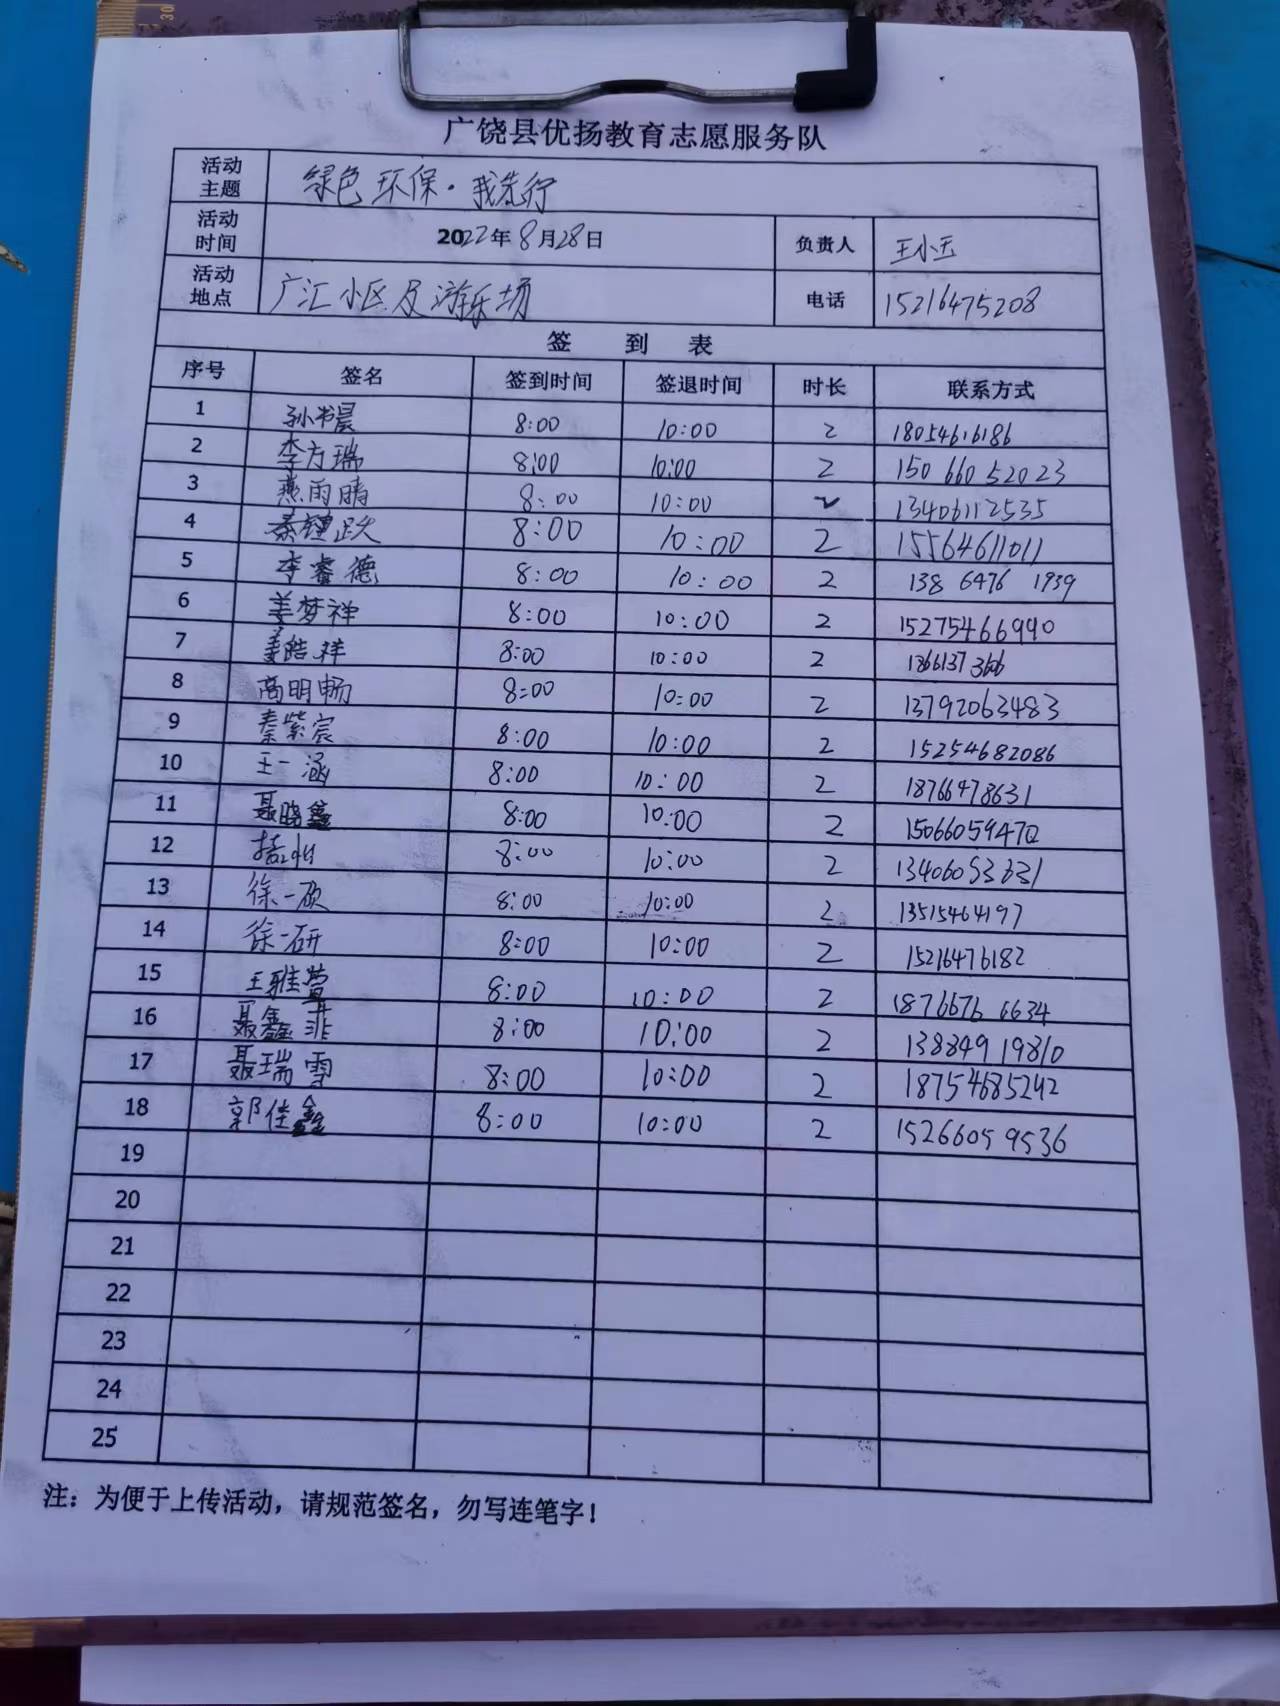 广饶县优扬教育志愿服务队
活动主题 绿色环保·我先行
活动时间 2022年8月28日 负责人 王小玉
活动地点 广汇小区及游乐场 电话 15216475208
签 到 表
序号 签名 签到时间 签退时间 时长 联系方式
1 孙书晨 8:00 10:00 2 18054616186
2 李方瑞 8:00 10:00 2 150 660 52023
3 燕雨晴 8:00 10:00 2 13406112535
4 秦键跃 8:00 10:00 2 15564611011
5 李睿德 8:00 10:00 2 138 6476 1939
6 姜梦祥 8:00 10:00 2 15275466990
7 姜皓祥 8:00 10:00 2
8 高明畅 8:00 10:00 2 13792063483
9 秦紫宸 8:00 10:00 2 15254682086
10 王一涵 8:00 10:00 2 18766478631
11 聂晓鑫 8:00 10:00 2 15066059470
12 8:00 10:00 2 13406053631
13 徐一硕 8:00 10:00 2 13515464197
14 徐一研 8:00 10:00 2 15216476182
15 王雅萱 8:00 10:00 2 1876676 6634
16 聂鑫菲 8:00 10:00 2 138849 19810
17 聂瑞雪 8:00 10:00 2 18754685242
18 郭佳鑫 8:00 10:00 2 1526605 9536
19
20
21
22
23
24
25
注：为便于上传活动，请规范签名，勿写连笔字！